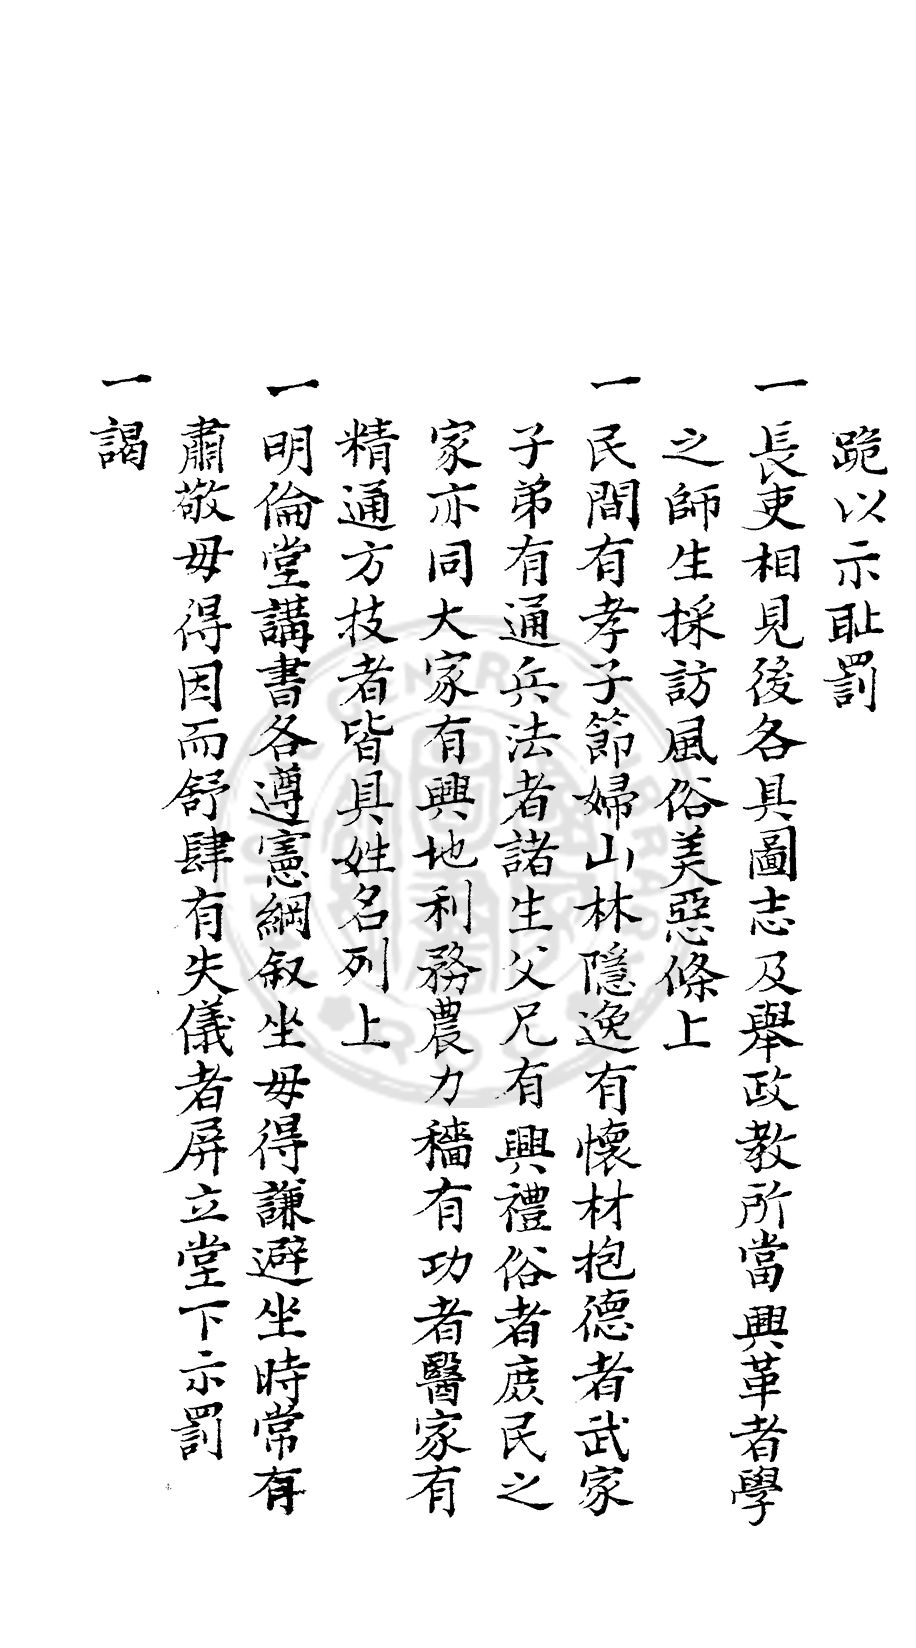 跪以示耻罰
一長吏相見後各具圖志及舉政教所當興革者學
之師生採訪風俗美惡條上
一民間有孝子節婦山林隱逸有懷材抱德者武家
子弟有通兵法者諸生父兄有興禮俗者庶民之
家亦同大家有興地利務農力穡有功者醫家有
精通方技者皆具姓名列上
一明倫堂講書各遵憲綱叙坐毋得謙避坐時常有
肅敬毋得因而舒肆有失儀者屏立堂下示罰
一謁